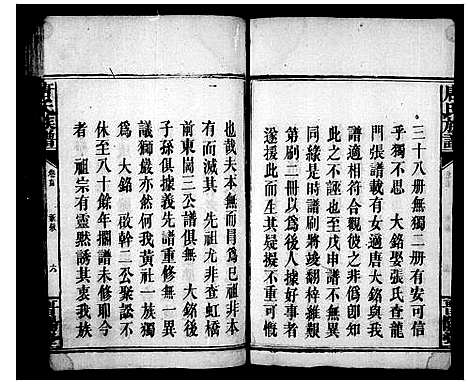 三十八册無獨二册有安可信
乎獨不思 大銘娶張氏查龍
門張譜載有女適唐大銘與我
譜適相符合觀彼之非僞即知
此之不誣也至戊申譜不無覩
同緣是時譜刷將竣翻梓維艱
第刷二册以爲後人據好事者
遂援此而生其疑擬不重可慨
也哉夫本無而冐爲已祖非本
有而滅其 先祖尤非查虹橋
前東崗三公譜俱無 大銘後
子孫俱據義先譜重修無一異
議獨嚴亦然何我黄社一族獨
爲 大銘 啟幹二公聚訟不
休至八十餘年擱譜未修耶今
者 祖宗有靈黙誘其衷我族
唐氏族譜
卷首
六
唐氏族譜